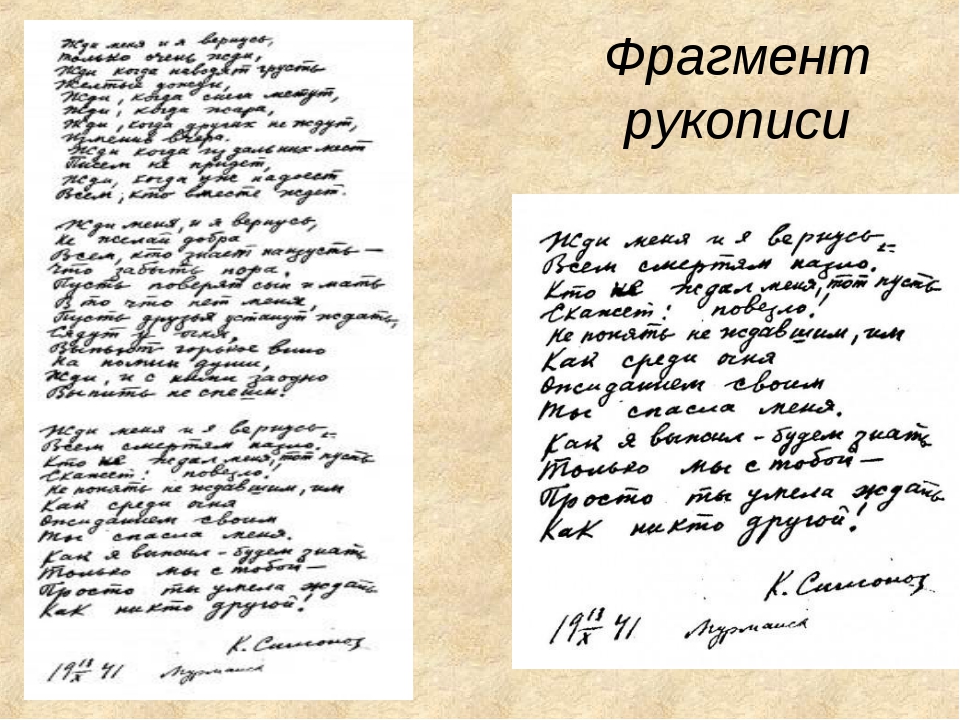 Фрагмент
рукописи
Жди меня и я вернусь,
только очень жди,
Жди когда наводят грусть
Желтые дожди,
Жди, когда снега метут,
Жди, когда жара,
Жди, когда других не ждут,
Изменив вчера.
Жди когда из дальних мест
Писем не придет,
Жди, когда уж надоест
Всем, кто вместе ждет.
Жди меня, и я вернусь,
Не желай добра
Всем, кто знает наизусть —
что забыть пора.
Пусть поверят сын и мать
В то что нет меня,
Пусть друзья устанут ждать,
Сядут у огня,
Выпьют горькое вино
На помин души,
Жди, и с ними заодно
Выпить не спеши.
Жди меня и я вернусь
Всем смертям назло.
Кто не ждал меня, тот пусть
Скажет: повезло!
Не понять не ждавшим, им
Как среди огня
Ожиданием своим
Ты спасла меня.
Как я выжил - будем знать
Только мы с тобой —
Просто ты умела ждать
Как никто другой!
К. Симонов
19 18/X 41 Мурманск
Жди меня и я вернусь
Всем смертям назло.
Кто не ждал меня, тот пусть
Скажет: повезло!
Не понять не ждавшим, им
Как среди огня
Ожиданием своим
Ты спасла меня.
Как я выжил - будем знать
Только мы с тобой —
Просто ты умела ждать
Как никто другой!
К. Симонов
19 18/X 41 Мурманск